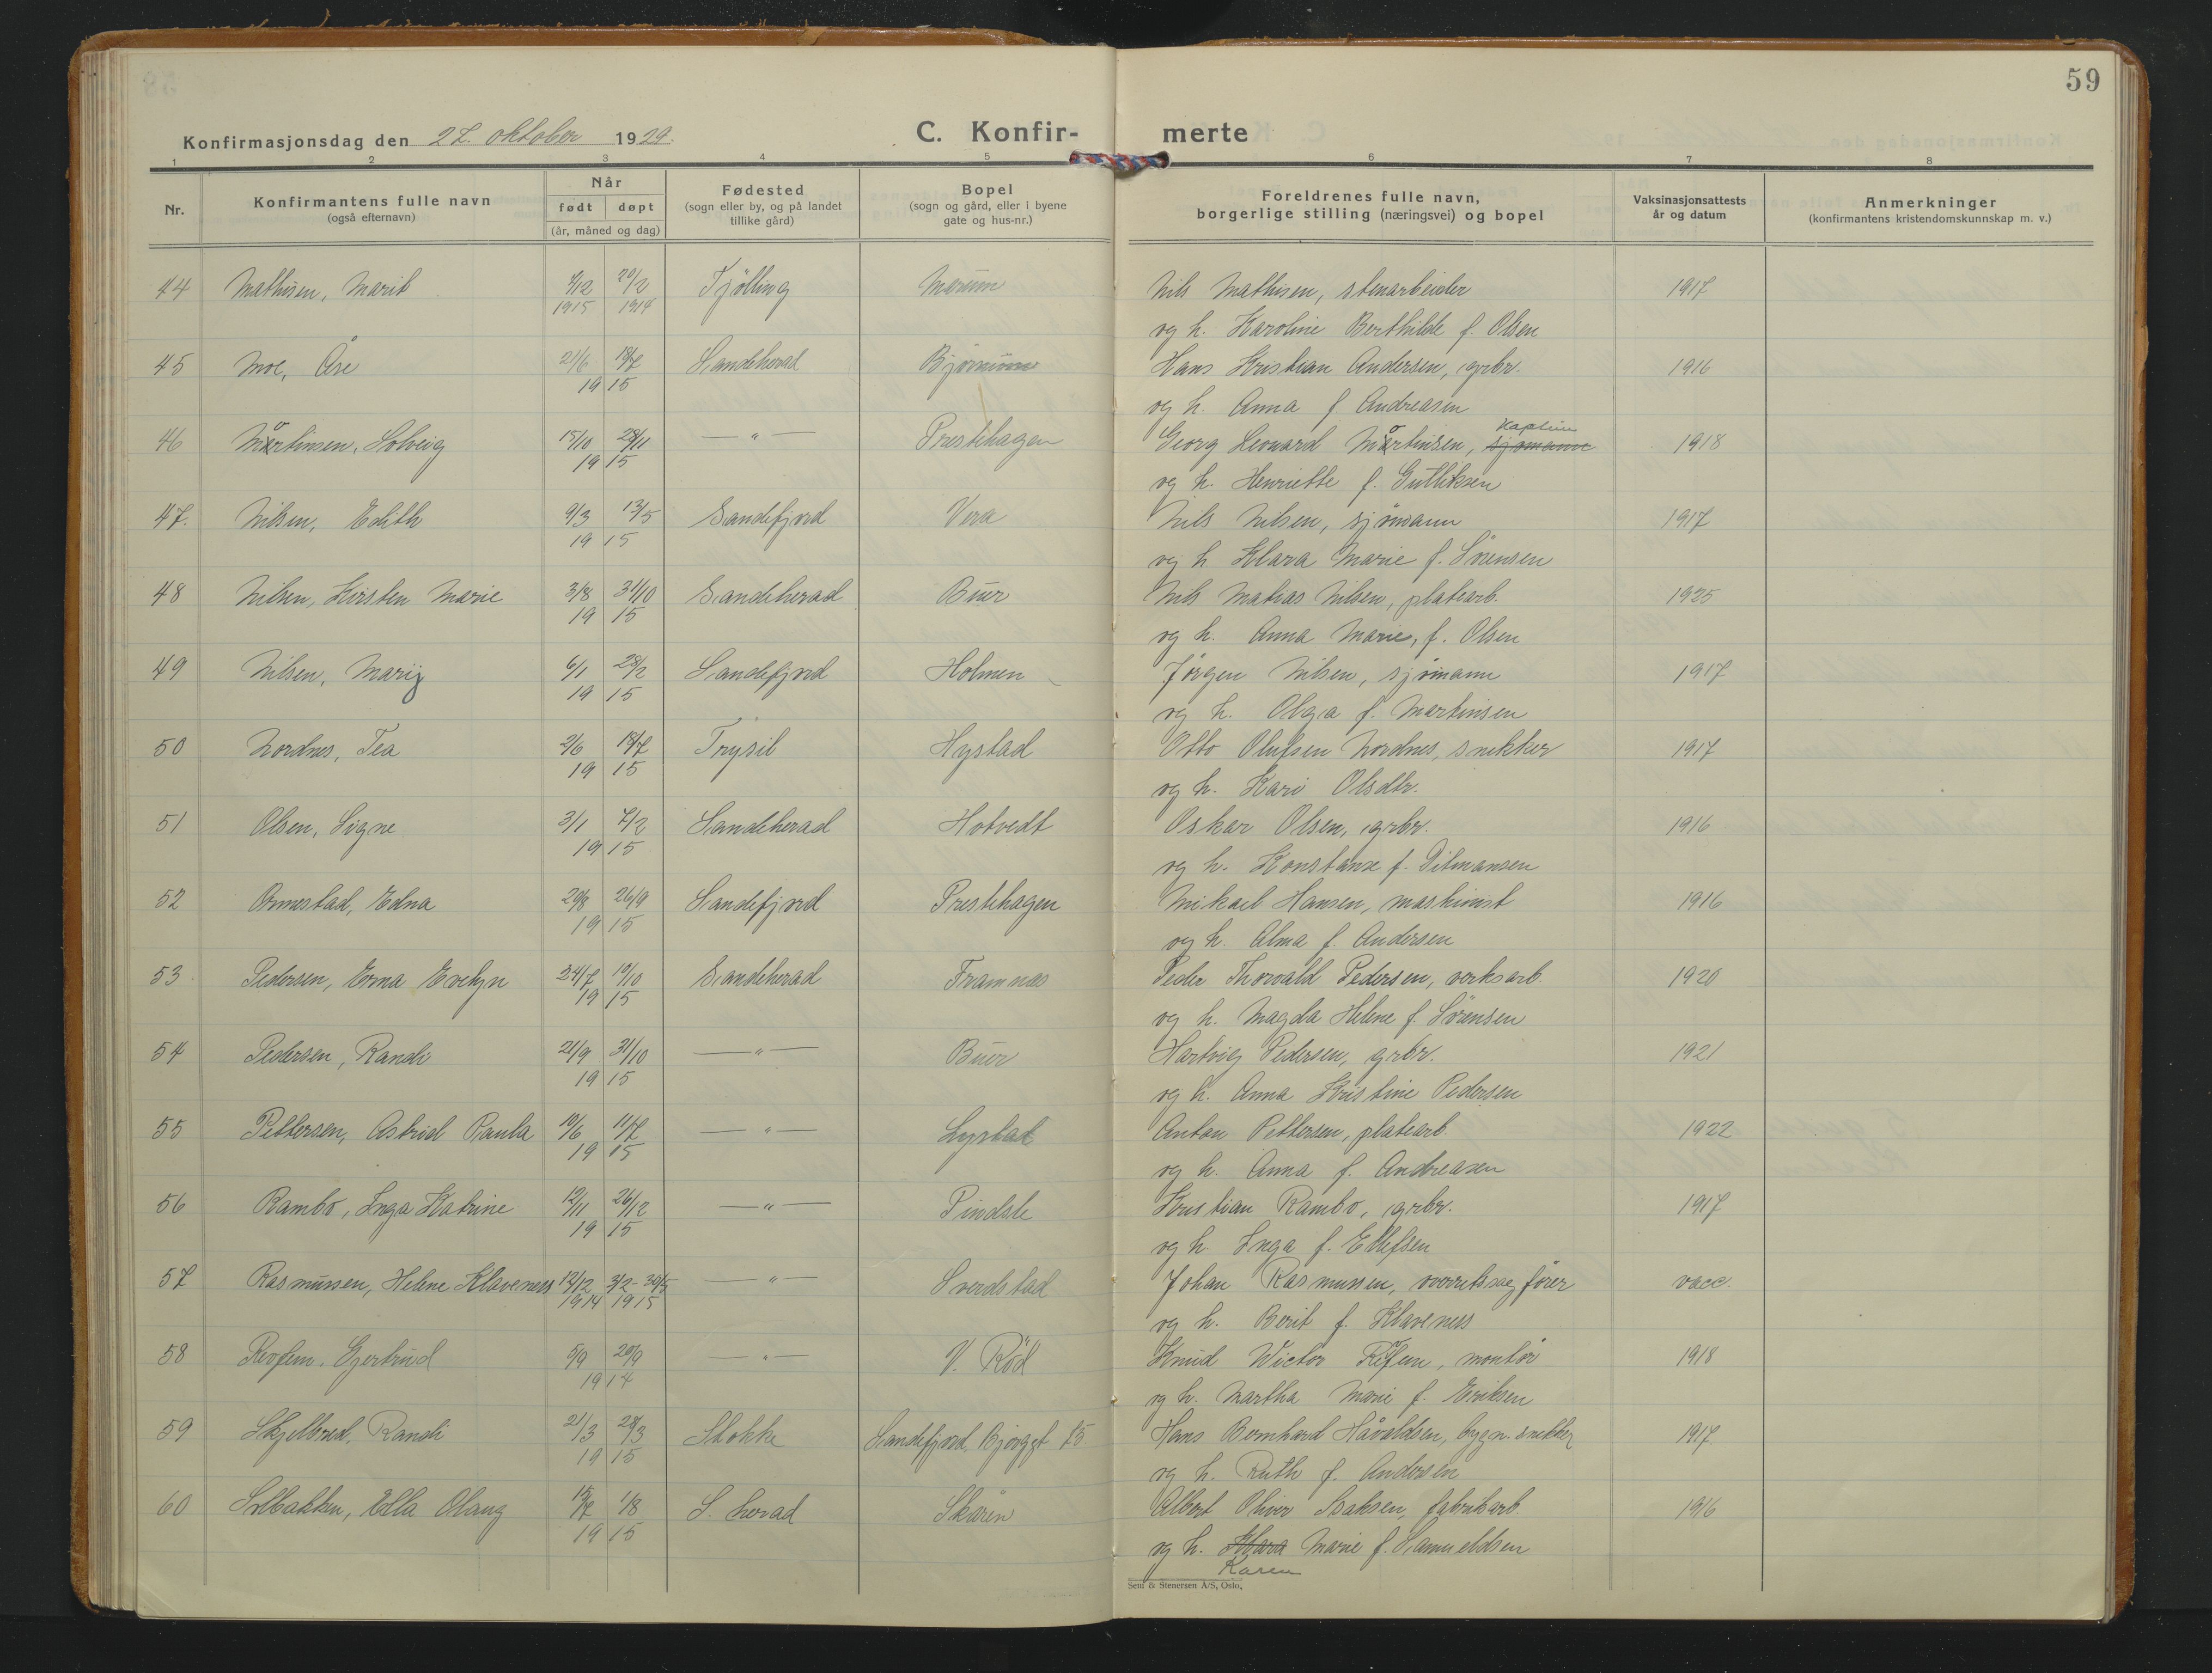 59
Konfirmasjonsdag den 27. oktober 1929.
C. Konfir-
merte
1 2 3 4 5 6 7 8
Nr.
Konfirmantens fulle navn
(også efternavn)
Når
født døpt
(år, måned og dag)
Fødested
(sogn eller by, og på landet
tillike gård)
Bopel
(sogn og gård, eller i byene
gate og hus-nr.)
Foreldrenes fulle navn,
borgerlige stilling (næringsvei) og bopel
Vaksinasjonsattests
år og datum
Anmerkninger
(konfirmantens kristendomskunnskap m. v.)
44 Mathisen, Marit 20/2 Tjølling Nils Mathisen, stenarbeider 1917
1915 1914 og h. Karoline Berthilde f. Olsen
45 Moe, Åse 21/6 18/7 Sandeherad Bjørnum Hans Kristian Andersen, grbr. 1916
19 15 og h. Anna f. Andreasen
Kaptein
46 Mørtinsen, Solveig 15/10 28/11 — " — Prestehagen Georg Leonard Mørtinsen, sjømann 1918
19 15 og h. Henriette f. Gulliksen
47. Nilsen, Edith 9/3 13/5 Sandefjord Vera Nils Nilsen, sjømann 1917
19 15 og h. Klara Marie f. Sørensen
48 Nilsen, Kirsten Marie 3/8 31/10 Sandeherad Buer Nils Matias Nilsen, platearb. 1925
19 15 og h. Anna Marie, f. Olsen
49 Nilsen, Marij 6/1 28/2 Sandefjord Holmen Jørgen Nilsen, sjømann 1917
19 15 og h. Olga f. Martinsen
50 Nordnes, Tea 2/6 18/7 Trysil Hystad Otto Olufsen Nordnes, snekker 1917
19 15 og h. Kari Olsdtr.
51 Olsen, Signe 3/1 7/2 Sandeherad Hotvedt Oskar Olsen, grbr. 1916
19 15 og h. Konstanse f. Ditmansen
52 Ormestad, Edna 29/8 26/9 Sandefjord Prestehagen Mikael Hansen, maskinist 1916
19 15 og h. Alma f. Andersen
53. Pedersen, Erna Evelyn 24/7 10/10 Sandeherad Framnæs Peder Thorvald Pedersen, verksarb. 1920
19 15 og h. Magda Helene f. Sørensen
54 Pedersen, Randi 21/9 31/10 — " — Buer Hartvig Pedersen, grbr. 1921
19 15 og h. Anna Kristine Pedersen
55 Pettersen, Astrid Paula 10/6 11/7 — " — Lystad Anton Pettersen, platearb. 1922
19 15 og h. Anna f. Andreasen
56 Rambo, Inga Katrine 12/11 26/12 — " — Pindsle Kristian Rambo, grbr. 1917
19 15 og h. Inga f. Ellefsen
57 Rasmussen, Helene Klaveness 12/12 3/2 - 30/5 — " — Sverdstad Johan Rasmussen, overretssagfører vacc.
1914 1915 og h. Berit f. Klaveness
58 Revfem, Gjertrud 5/9 20/9 — " — V. Rød Knud Wictor Refem, montør 1918
19 14 og h. Martha Marie f. Eriksen
59 Skjelbred, Randi 21/3 28/3 Stokke Sandefjord, Bjerggt 25 Hans Bernhard Håvaldsen, bygn. snekker 1917
19 15 og h. Ruth f. Andersen
60 Solbakken, Ella Olaug 15/7 1/8 S. herad Skåren Albert Oliver Isaksen, fabrikarb. 1916
19 15 og h. Klara Marie f. Samueldsen
Karen
Sem & Stenersen A/S, Oslo.